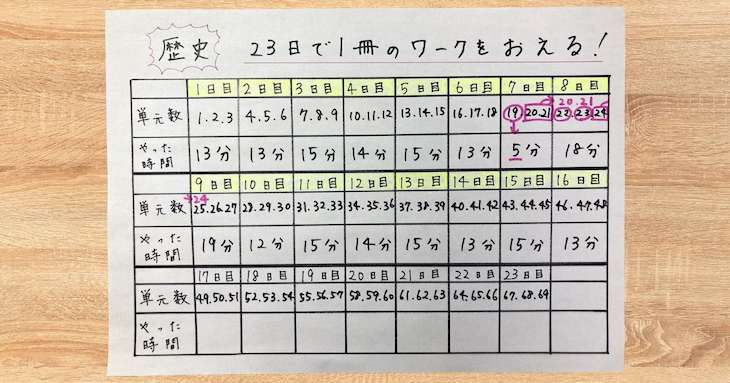 歴史 23日で1冊のワークをおえる!
1日目 2日目 3日目 4日目 5日目 6日目 7日目 8日目
20.21
単元数 1.2.3 4.5.6 7.8.9 10.11.12 13.14.15 16.17.18 19 20.21 22.23 24
やった時間 13分 13分 15分 14分 15分 13分 5分 18分
9日目 10日目 11日目 12日目 13日目 14日目 15日目 16日目
24
単元数 25.26.27 28.29.30 31.32.33 34.35.36 37.38.39 40.41.42 43.44.45 46.47.48
やった時間 19分 12分 15分 14分 15分 13分 15分 13分
17日目 18日目 19日目 20日目 21日目 22日目 23日目
単元数 49.50.51 52.53.54 55.56.57 58.59.60 61.62.63 64.65.66 67.68.69
やった時間